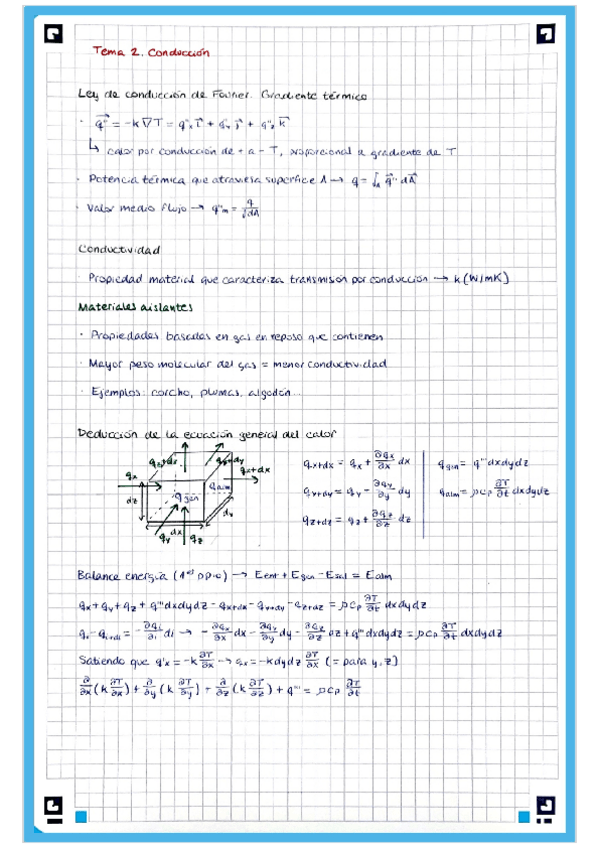 Tema 2. Conducción
Ley de conducción de Fourier. Gradiente térmico
· q⃗'' = -k∇T = q''ₓ i⃗ + q''ᵧ j⃗ + q''_z k⃗
↳ calor por conducción de + a - T, proporcional a gradiente de T
· Potencia térmica que atraviesa superficie A → q = ∫_A q⃗'' dA⃗
· Valor medio flujo → q''m = q/∫dA
Conductividad
· Propiedad material que caracteriza transmisión por conducción → k (W/mK)
Materiales aislantes
· Propiedades basadas en gas en reposo que contienen
· Mayor peso molecular del gas = menor conductividad
· Ejemplos: corcho, plumas, algodón...
Deducción de la ecuación general del calor
qz+dz qy+dy
qx+dx
qx
qgen qalm
dz
dx dy
qy qz
qx+dx = qx + ∂qx/∂x dx
qy+dy = qy + ∂qy/∂y dy
qz+dz = qz + ∂qz/∂z dz
qgen = q''' dxdydz
qalm = ρcp ∂T/∂t dxdydz
Balance energía (1er ppio) → Eent + Egen - Esal = Ealm
qx + qy + qz + q''' dxdydz - qx+dx - qy+dy - qz+dz = ρcp ∂T/∂t dxdydz
qi - qi+di = - ∂qi/∂i di → - ∂qx/∂x dx - ∂qy/∂y dy - ∂qz/∂z dz + q''' dxdydz = ρcp ∂T/∂t dxdydz
Satiendo que q''x = -k ∂T/∂x → qx = -k dydz ∂T/∂x (= para y, z)
∂/∂x (k ∂T/∂x) + ∂/∂y (k ∂T/∂y) + ∂/∂z (k ∂T/∂z) + q''' = ρcp ∂T/∂t